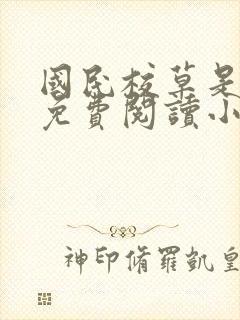 國民校草是
免費閱讀小
神印脩羅凱皇